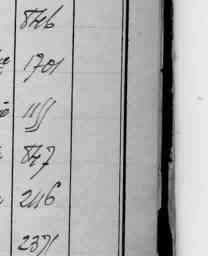 846
1701
1155
847
2116
2371